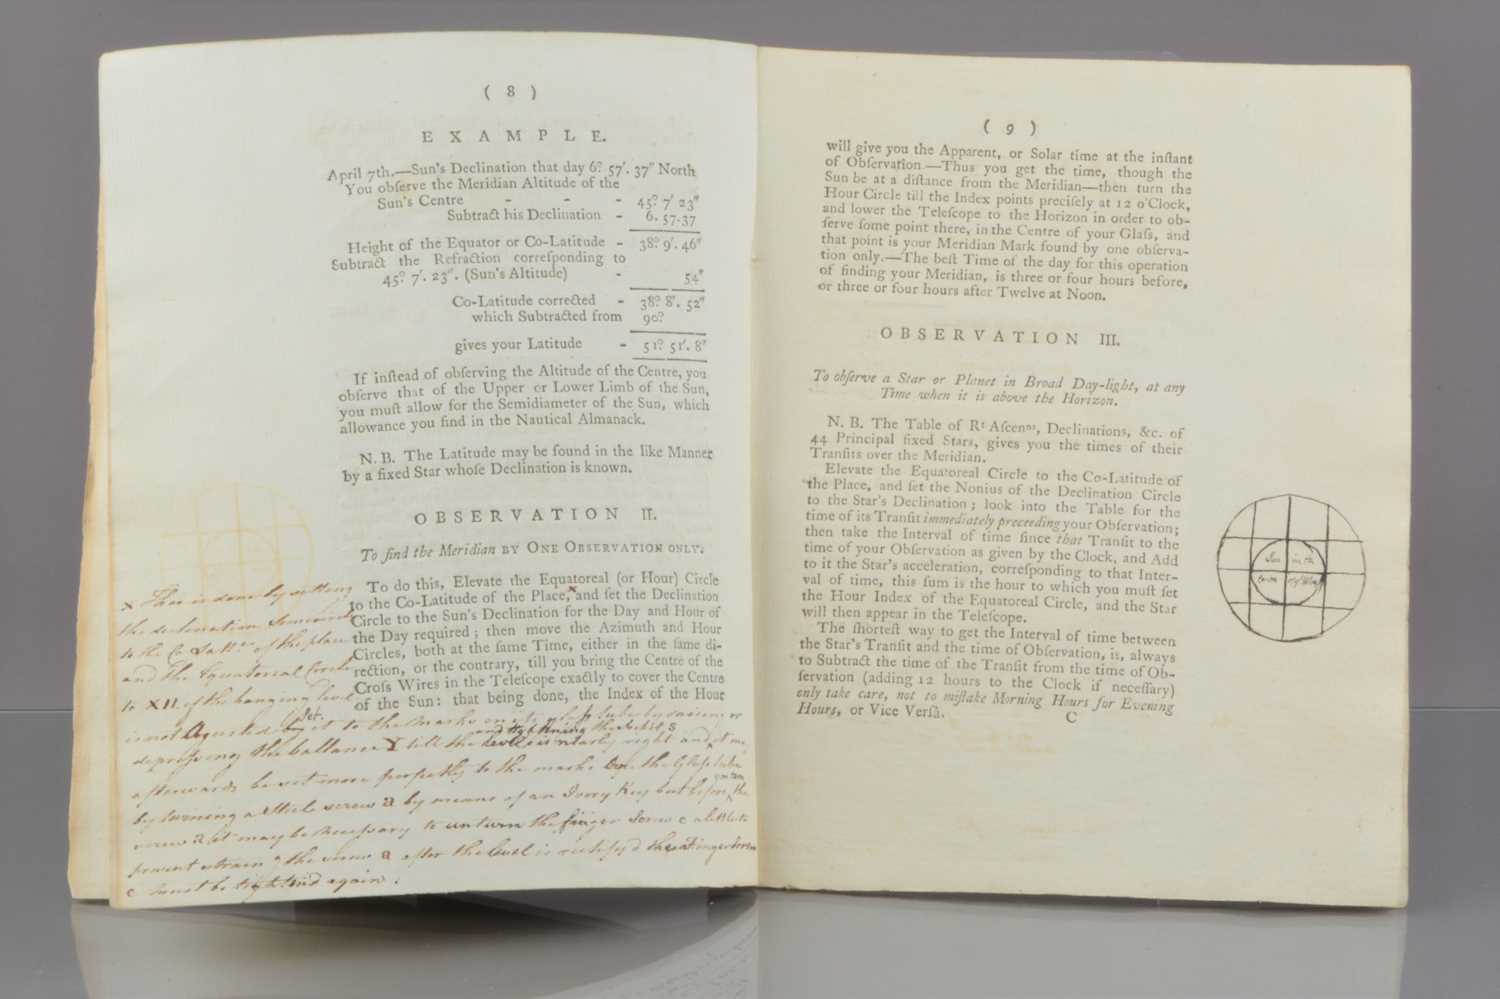 ( 8 )
EXAMPLE.
April 7th.—Sun's Declination that day 6? 57'. 37" North
You obſerve the Meridian Altitude of the
Sun's Centre - - - 45? 7' 23"
Subtract his Declination - 6. 57.37
Height of the Equator or Co-Latitude - 38? 9'. 46"
Subtract the Refraction correſponding to
45? 7'. 23". (Sun's Altitude) - 54"
Co-Latitude corrected - 38? 8'. 52"
which Subtracted from 90?
gives your Latitude - 51? 51'. 8"
If inſtead of obſerving the Altitude of the Centre, you
obſerve that of the Upper or Lower Limb of the Sun,
you muſt allow for the Semidiameter of the Sun, which
allowance you find in the Nautical Almanack.
N. B. The Latitude may be found in the like Manner
by a fixed Star whoſe Declination is known.
OBSERVATION II.
To find the Meridian BY ONE OBSERVATION ONLY.
To do this, Elevate the Equatoreal (or Hour) Circle
to the Co-Latitude of the Place,x and ſet the Declination
Circle to the Sun's Declination for the Day and Hour of
the Day required; then move the Azimuth and Hour
Circles, both at the ſame Time, either in the ſame di-
rection, or the contrary, till you bring the Centre of the
Croſs Wires in the Teleſcope exactly to cover the Centre
of the Sun: that being done, the Index of the Hour
x This is done by setting
the declination Semicircle
to the Co Latde. of the place
and the Equatorial Circle
to XII. if the hanging level
is not Adjusted set it to the marks on its glass tube by raising or
depressing the ballance Y till the level is nearly right and tightning the it may
afterwards be set more perfectly to the marks on the Glass tube
by turning a steel screw a by means of an Ivory Key but before you turn the
screw a it may be necessary to unturn the finger screw c a little to
prevent strain g the screw a after the level is rectify'd the finger screw
c must be tightned again.
( 9 )
will give you the Apparent, or Solar time at the inſtant
of Obſervation.—Thus you get the time, though the
Sun be at a diſtance from the Meridian—then turn the
Hour Circle till the Index points preciſely at 12 o'Clock,
and lower the Teleſcope to the Horizon in order to ob-
ſerve ſome point there, in the Centre of your Glaſs, and
that point is your Meridian Mark found by one obſerva-
tion only.—The beſt Time of the day for this operation
of finding your Meridian, is three or four hours before,
or three or four hours after Twelve at Noon.
OBSERVATION III.
To obſerve a Star or Planet in Broad Day-light, at any
Time when it is above the Horizon.
N. B. The Table of Rt Aſcenns, Declinations, &c. of
44 Principal fixed Stars, gives you the times of their
Tranſits over the Meridian.
Elevate the Equatoreal Circle to the Co-Latitude of
the Place, and ſet the Nonius of the Declination Circle
to the Star's Declination; look into the Table for the
time of its Tranſit immediately preceeding your Obſervation;
then take the Interval of time ſince that Tranſit to the
time of your Obſervation as given by the Clock, and Add
to it the Star's acceleration, correſponding to that Inter-
val of time, this ſum is the hour to which you muſt ſet
the Hour Index of the Equatoreal Circle, and the Star
will then appear in the Teleſcope.
The ſhorteſt way to get the Interval of time between
the Star's Tranſit and the time of Obſervation, is, always
to Subtract the time of the Tranſit from the time of Ob-
ſervation (adding 12 hours to the Clock if neceſſary)
only take care, not to miſtake Morning Hours for Evening
Hours, or Vice Verſâ.
C
Sun in the